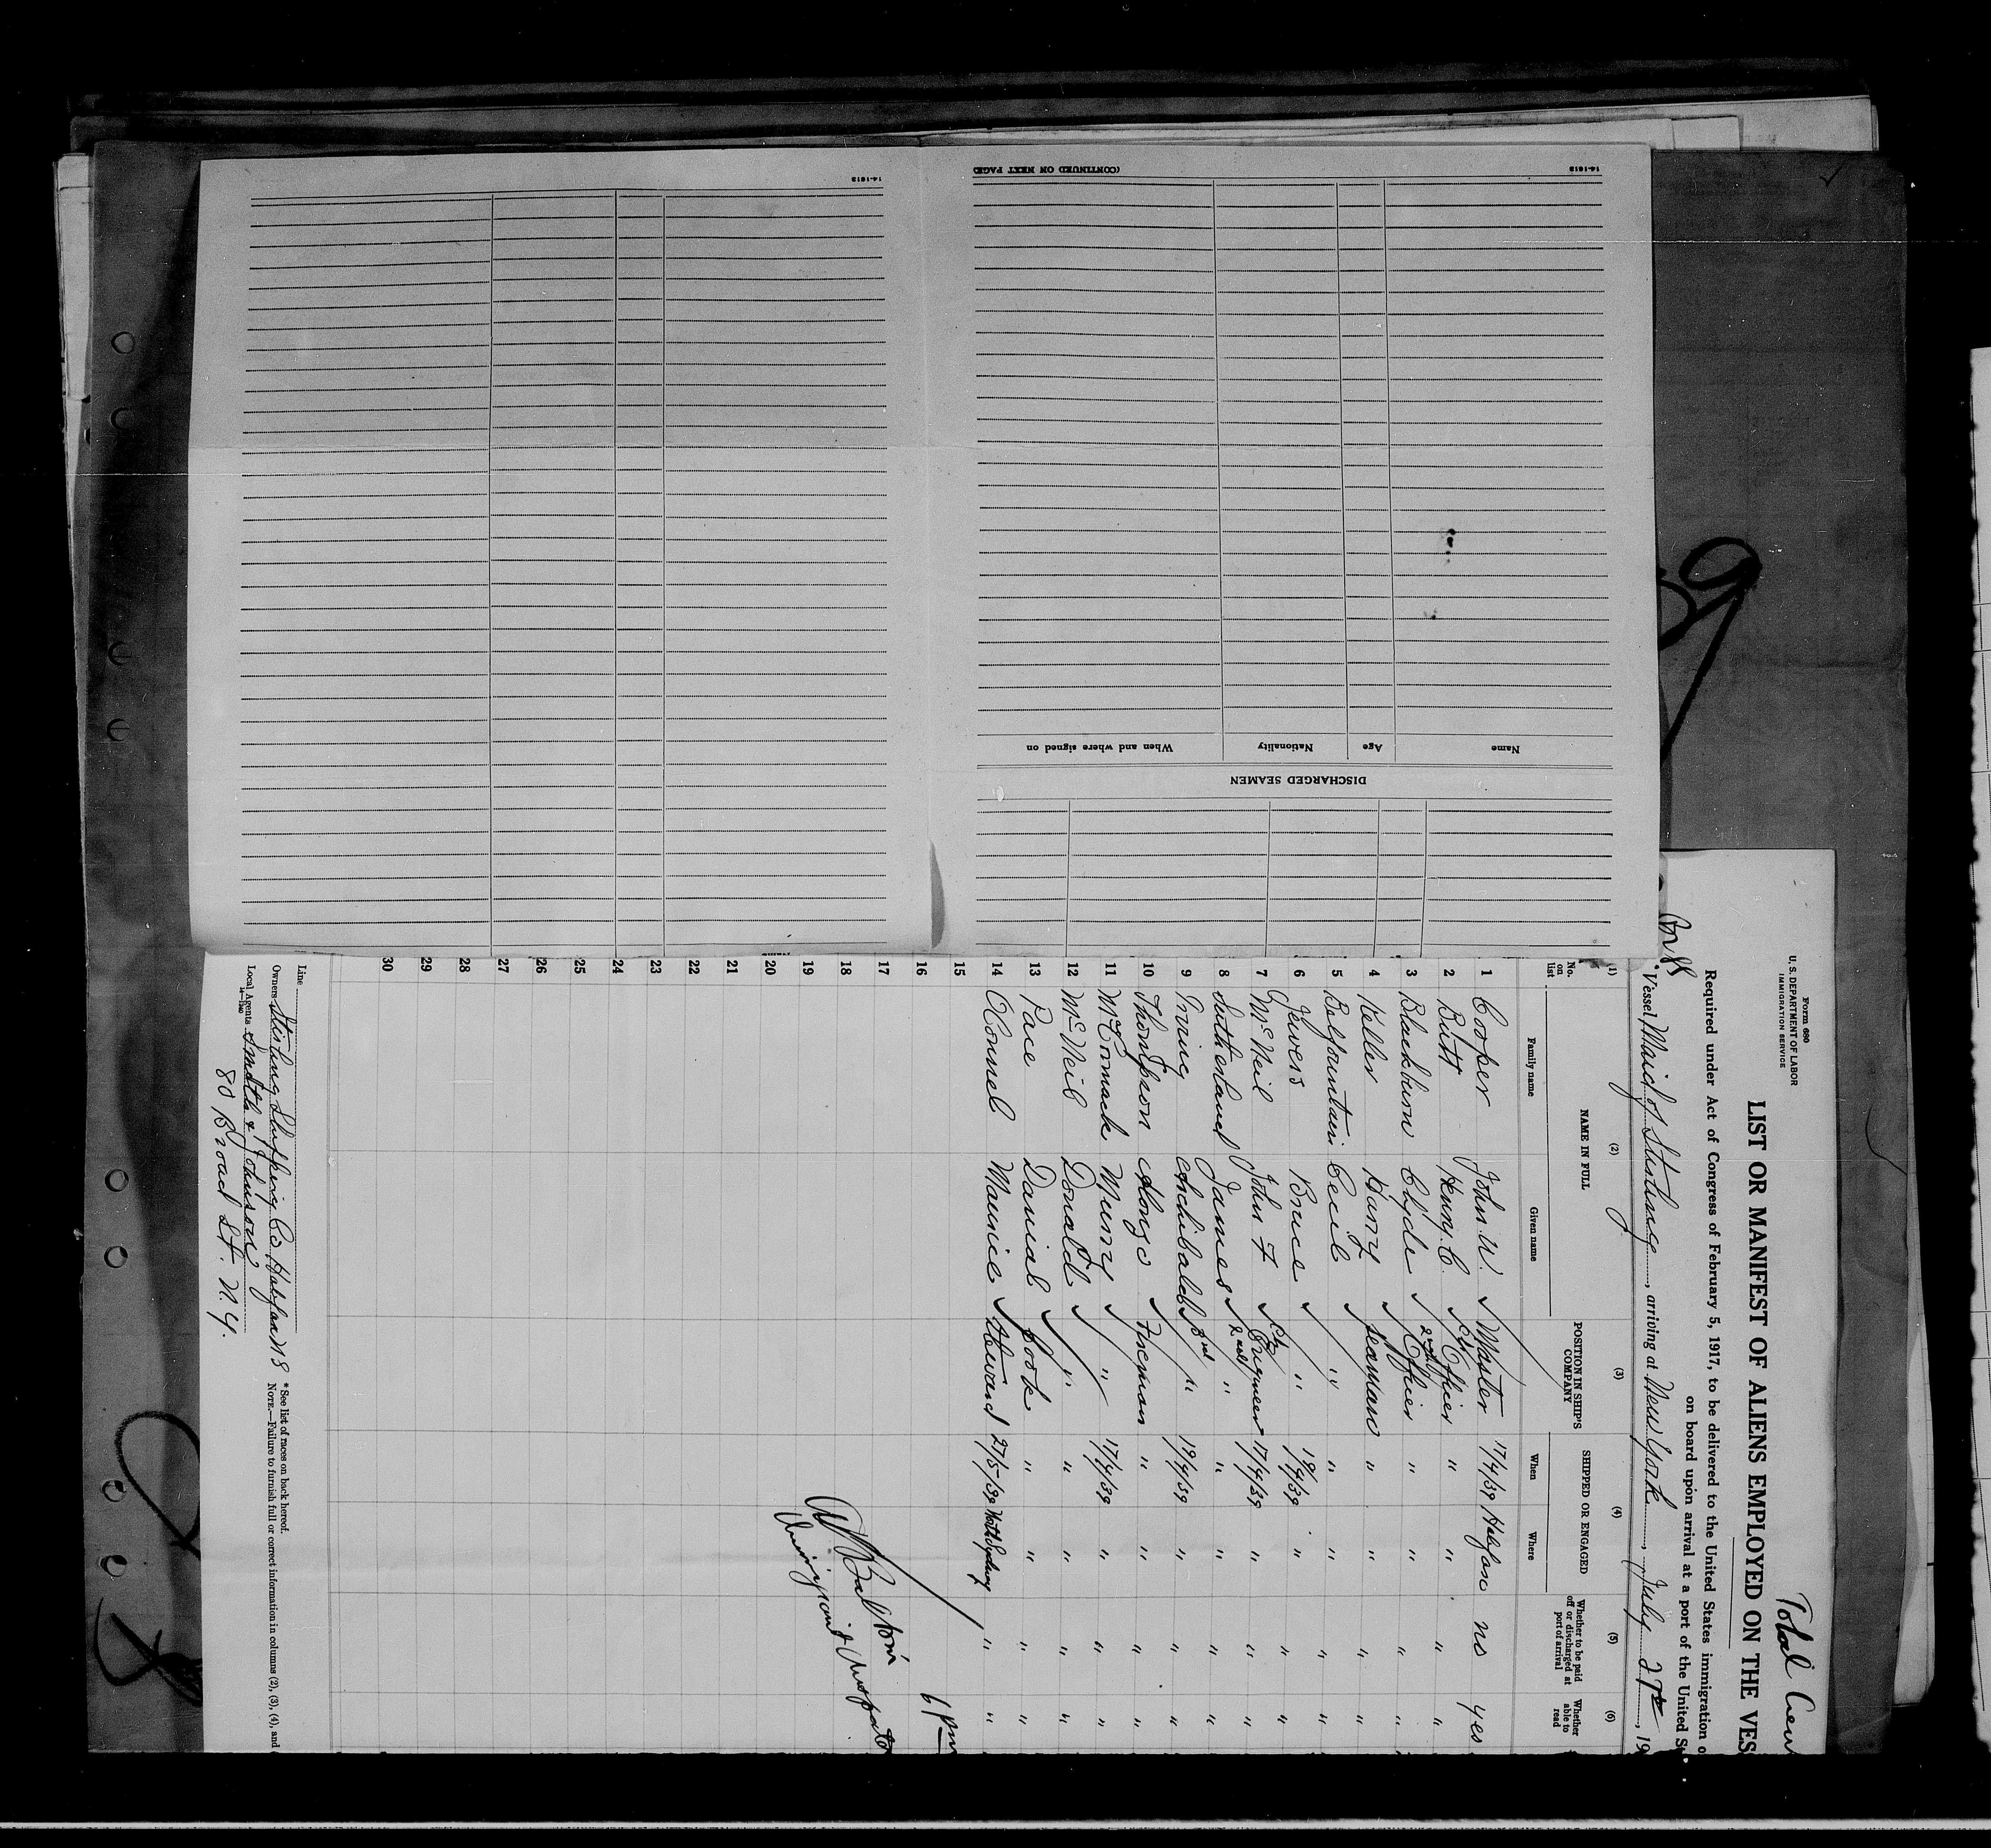 14-1813
(CONTINUED ON NEXT PAGE)
14-1813
Name
Age
Nationality
When and where signed on
DISCHARGED SEAMEN
Form 680
U. S. DEPARTMENT OF LABOR
IMMIGRATION SERVICE
Total Crew
LIST OR MANIFEST OF ALIENS EMPLOYED ON THE VES
Required under Act of Congress of February 5, 1917, to be delivered to the United States immigration o
on board upon arrival at a port of the United St
Vessel Maid of Stirling, arriving at New York, July 27th, 19
(1) (2) (3) (4) (5) (6)
No. on list
NAME IN FULL
Family name
Given name
POSITION IN SHIP'S COMPANY
SHIPPED OR ENGAGED
When
Where
Whether to be paid off or discharged at port of arrival
Whether able to read
1 Cooper John W. Master 17/4/39 Halifax no yes
2 Butt Henry C. Ch Officer " " " "
3 Blackburn Clyde 2nd Officer " " " "
4 Keller Harry seaman " " " "
5 Belfountain Cecil " " " " "
6 Bruce " 19/4/39 " " "
7 McNeil John F Ch Engineer 17/4/39 " " "
8 Sutherland James 2nd " " " " "
9 Archibald 3rd " 19/4/39 " " "
10 Thompson Alonzo Fireman " " " "
11 McComack Murry " 17/4/39 " " "
12 McNeil Donald " " " " "
13 Pace Danial Cook " " " "
14 O'Connel Maurice Steward 27/5/39 North Sydney " "
15
16
17
18
19
20
21
22
23
24
25
26
27
28
29
30
6 pm
Line
Owners Stirling Shipping Co Halifax NS
Local Agents Smith & Johnson
80 Broad St. N.Y.
* See list of races on back hereof.
NOTE.—Failure to furnish full or correct information in columns (2), (3), (4), and